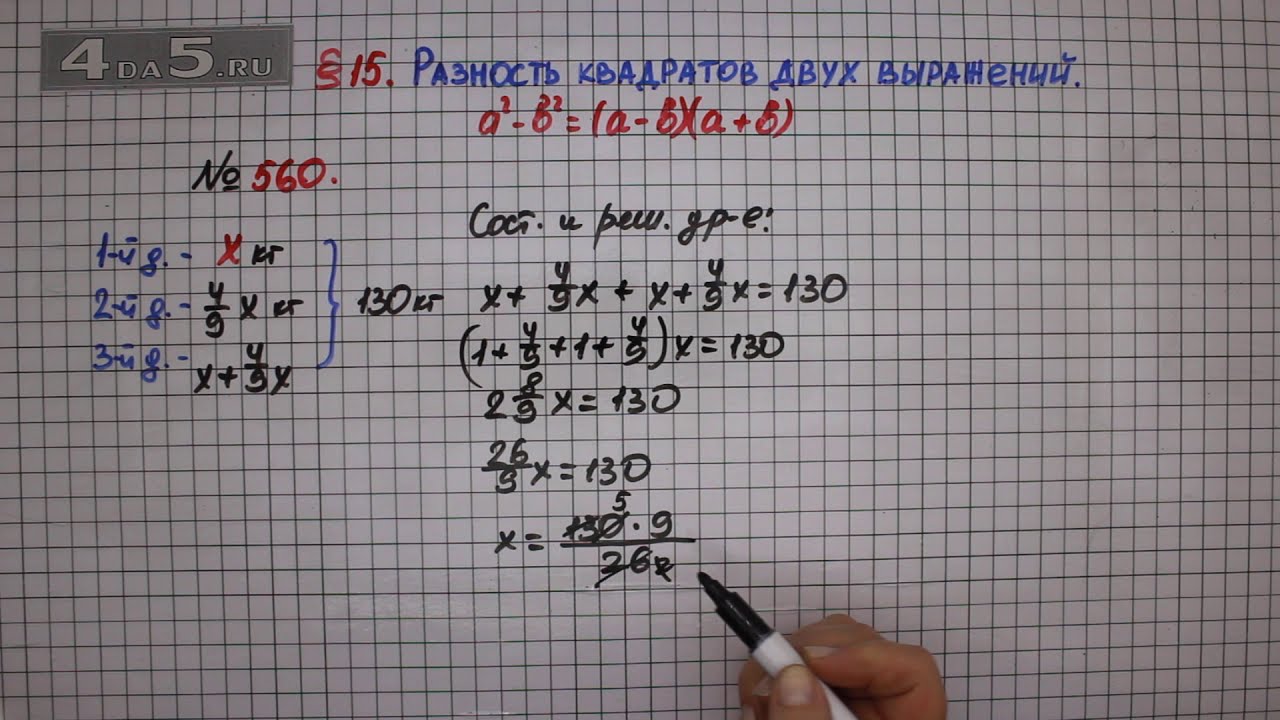 4DA5.RU
§15. Разность квадратов двух выражений.
a² - b² = (a - b)(a + b)
№ 560.
1-й д. - x кг
2-й д. - 4/9 x кг
3-й д. - x + 4/9 x
130 кг
Сост. и реш. ур-е:
x + 4/9 x + x + 4/9 x = 130
(1 + 4/9 + 1 + 4/9) x = 130
2 8/9 x = 130
26/9 x = 130
x = 130 5 · 9 / 26